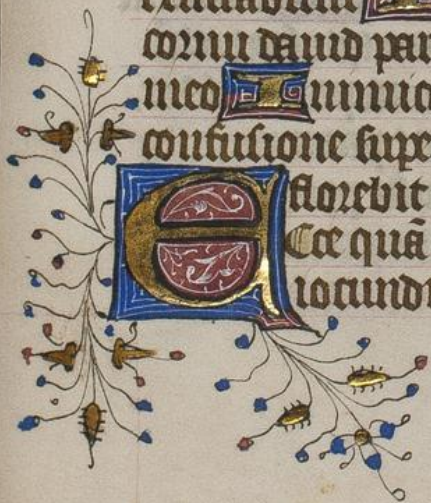 cornu dauid par
meo Inimico
confusione supe
florebit
Ecce quā
iocund